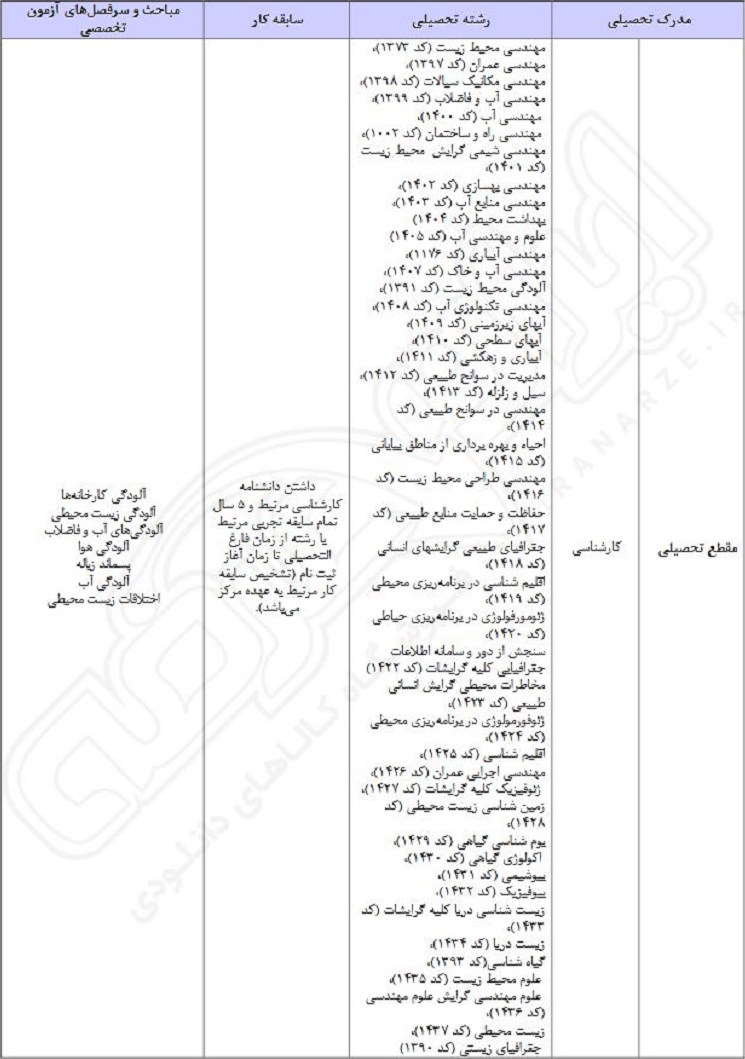 مدرک تحصیلی
رشته تحصیلی
سابقه کار
مباحث و سرفصل‌های آزمون
تخصصی
مقطع تحصیلی
کارشناسی
مهندسی محیط زیست (کد ۱۳۷۳)،
مهندسی عمران (کد ۱۳۹۷)،
مهندسی مکانیک سیالات (کد ۱۳۹۸)،
مهندسی آب و فاضلاب (کد ۱۳۹۹)،
مهندسی آب (کد ۱۴۰۰)،
مهندسی راه و ساختمان (کد ۱۰۰۲)،
مهندسی شیمی گرایش محیط زیست
(کد ۱۴۰۱)،
مهندسی بهسازی (کد ۱۴۰۲)،
مهندسی منابع آب (کد ۱۴۰۳)،
بهداشت محیط (کد ۱۴۰۴)
علوم و مهندسی آب (کد ۱۴۰۵)
مهندسی آبیاری (کد ۱۱۷۶)
مهندسی آب و خاک (کد ۱۴۰۷)،
آلودگی محیط زیست (کد ۱۳۹۱)،
مهندسی تکنولوژی آب (کد ۱۴۰۸)،
آبهای زیرزمینی (کد ۱۴۰۹)،
آبهای سطحی (کد ۱۴۱۰)،
آبیاری و زهکشی (کد ۱۴۱۱)،
مدیریت در سوانح طبیعی (کد ۱۴۱۲)،
سیل و زلزله (کد ۱۴۱۳)،
مهندسی در سوانح طبیعی (کد
۱۴۱۴)،
احیاء و بهره برداری از مناطق بیابانی
(کد ۱۴۱۵)،
مهندسی طراحی محیط زیست (کد
۱۴۱۶)،
حفاظت و حمایت منابع طبیعی (کد
۱۴۱۷)،
جغرافیای طبیعی گرایشهای انسانی
(کد ۱۴۱۸)،
اقلیم شناسی در برنامه‌ریزی محیطی
(کد ۱۴۱۹)،
ژئومورفولوژی در برنامه‌ریزی حیاطی
(کد ۱۴۲۰)،
سنجش از دور و سامانه اطلاعات
جغرافیایی کلیه گرایشات (کد ۱۴۲۲)
مخاطرات محیطی گرایش انسانی
طبیعی (کد ۱۴۲۳)،
ژئوفورمولوژی در برنامه‌ریزی محیطی
(کد ۱۴۲۴)،
اقلیم شناسی (کد ۱۴۲۵)،
مهندسی اجرایی عمران (کد ۱۴۲۶)،
ژئوفیزیک کلیه گرایشات (کد ۱۴۲۷)،
زمین شناسی زیست محیطی (کد
۱۴۲۸)،
بوم شناسی گیاهی (کد ۱۴۲۹)،
اکولوژی گیاهی (کد ۱۴۳۰)،
بیوشیمی (کد ۱۴۳۱)،
بیوفیزیک (کد ۱۴۳۲)،
زیست شناسی دریا کلیه گرایشات (کد
۱۴۳۳)،
زیست دریا (کد ۱۴۳۴)،
گیاه شناسی(کد ۱۳۹۳)،
علوم محیط زیست (کد ۱۴۳۵)،
علوم مهندسی گرایش علوم مهندسی
(کد ۱۴۳۶)،
زیست محیطی (کد ۱۴۳۷)،
جغرافیای زیستی (کد ۱۳۹۰)
داشتن دانشنامه
کارشناسی مرتبط و ۵ سال
تمام سابقه تجربی مرتبط
با رشته از زمان فارغ
التحصیلی تا زمان آغاز
ثبت نام (تشخیص سابقه
کار مرتبط به عهده مرکز
می‌باشد).
آلودگی کارخانه‌ها
آلودگی زیست محیطی
آلودگی‌های آب و فاضلاب
آلودگی هوا
پسماند زباله
آلودگی آب
اختلافات زیست محیطی